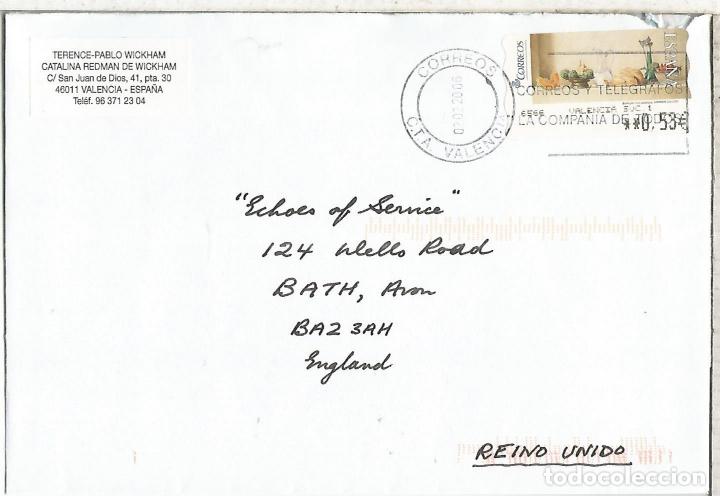 TERENCE-PABLO WICKHAM
CATALINA REDMAN DE WICKHAM
C/ San Juan de Dios, 41, pta. 30
46011 VALENCIA - ESPAÑA
Teléf. 96 371 23 04
CORREOS
02022006
C.T.A. VALENCIA
CORREOS
ESPAÑA
CORREOS Y TELÉGRAFOS
6566 VALENCIA SUC 1
LA COMPAÑIA DE TODOS
**0,53€
"Echoes of Service"
124 Wells Road
BATH, Avon
BA2 3AH
England
REINO UNIDO
todocoleccion